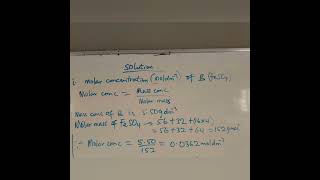 Solution
i. molar concentration (moldm⁻³) of B (FeSO₄)
Molar conc = Mass conc / Molar mass
Mass conc of B is 5.50gdm⁻³
Molar mass of FeSO₄ → 56+32+(16x4)
= 56+32+64 = 152gmol⁻¹
∴ Molar conc = 5.50 / 152 = 0.0362moldm⁻³